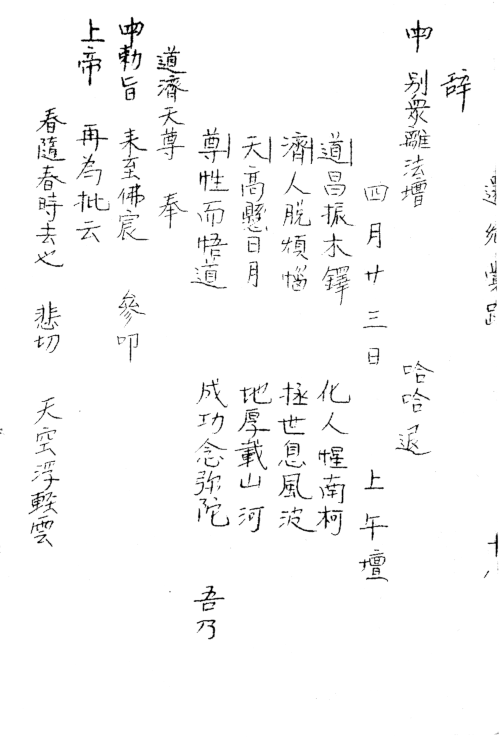 辭
申 别眾離法壇 哈哈退
四月廿三日 上午壇
道昌振木鐸 化人惺南柯
濟人脱煩惱 拯世息風波
天高懸日月 地厚載山河
尊性而悟道 成功念弥陀 吾乃
道濟天尊 奉
申勅旨 来至佛宸 參叩
上帝 再為批云
春隨春時去也 悲切 天空浮輕雲